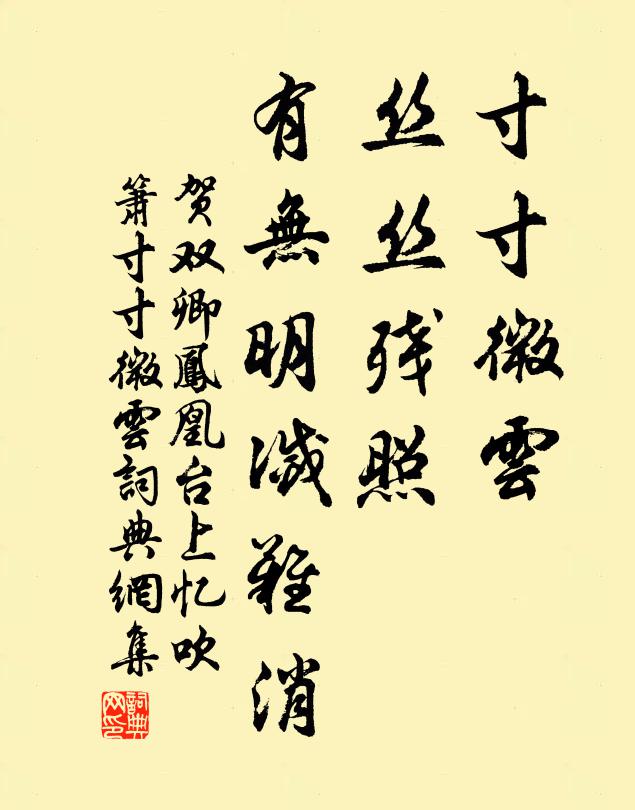 寸寸微雲
丝丝残照
有無明滅難消
贺双卿鳳凰台上忆吹
簫寸寸微雲詞典網集
詞典
网印